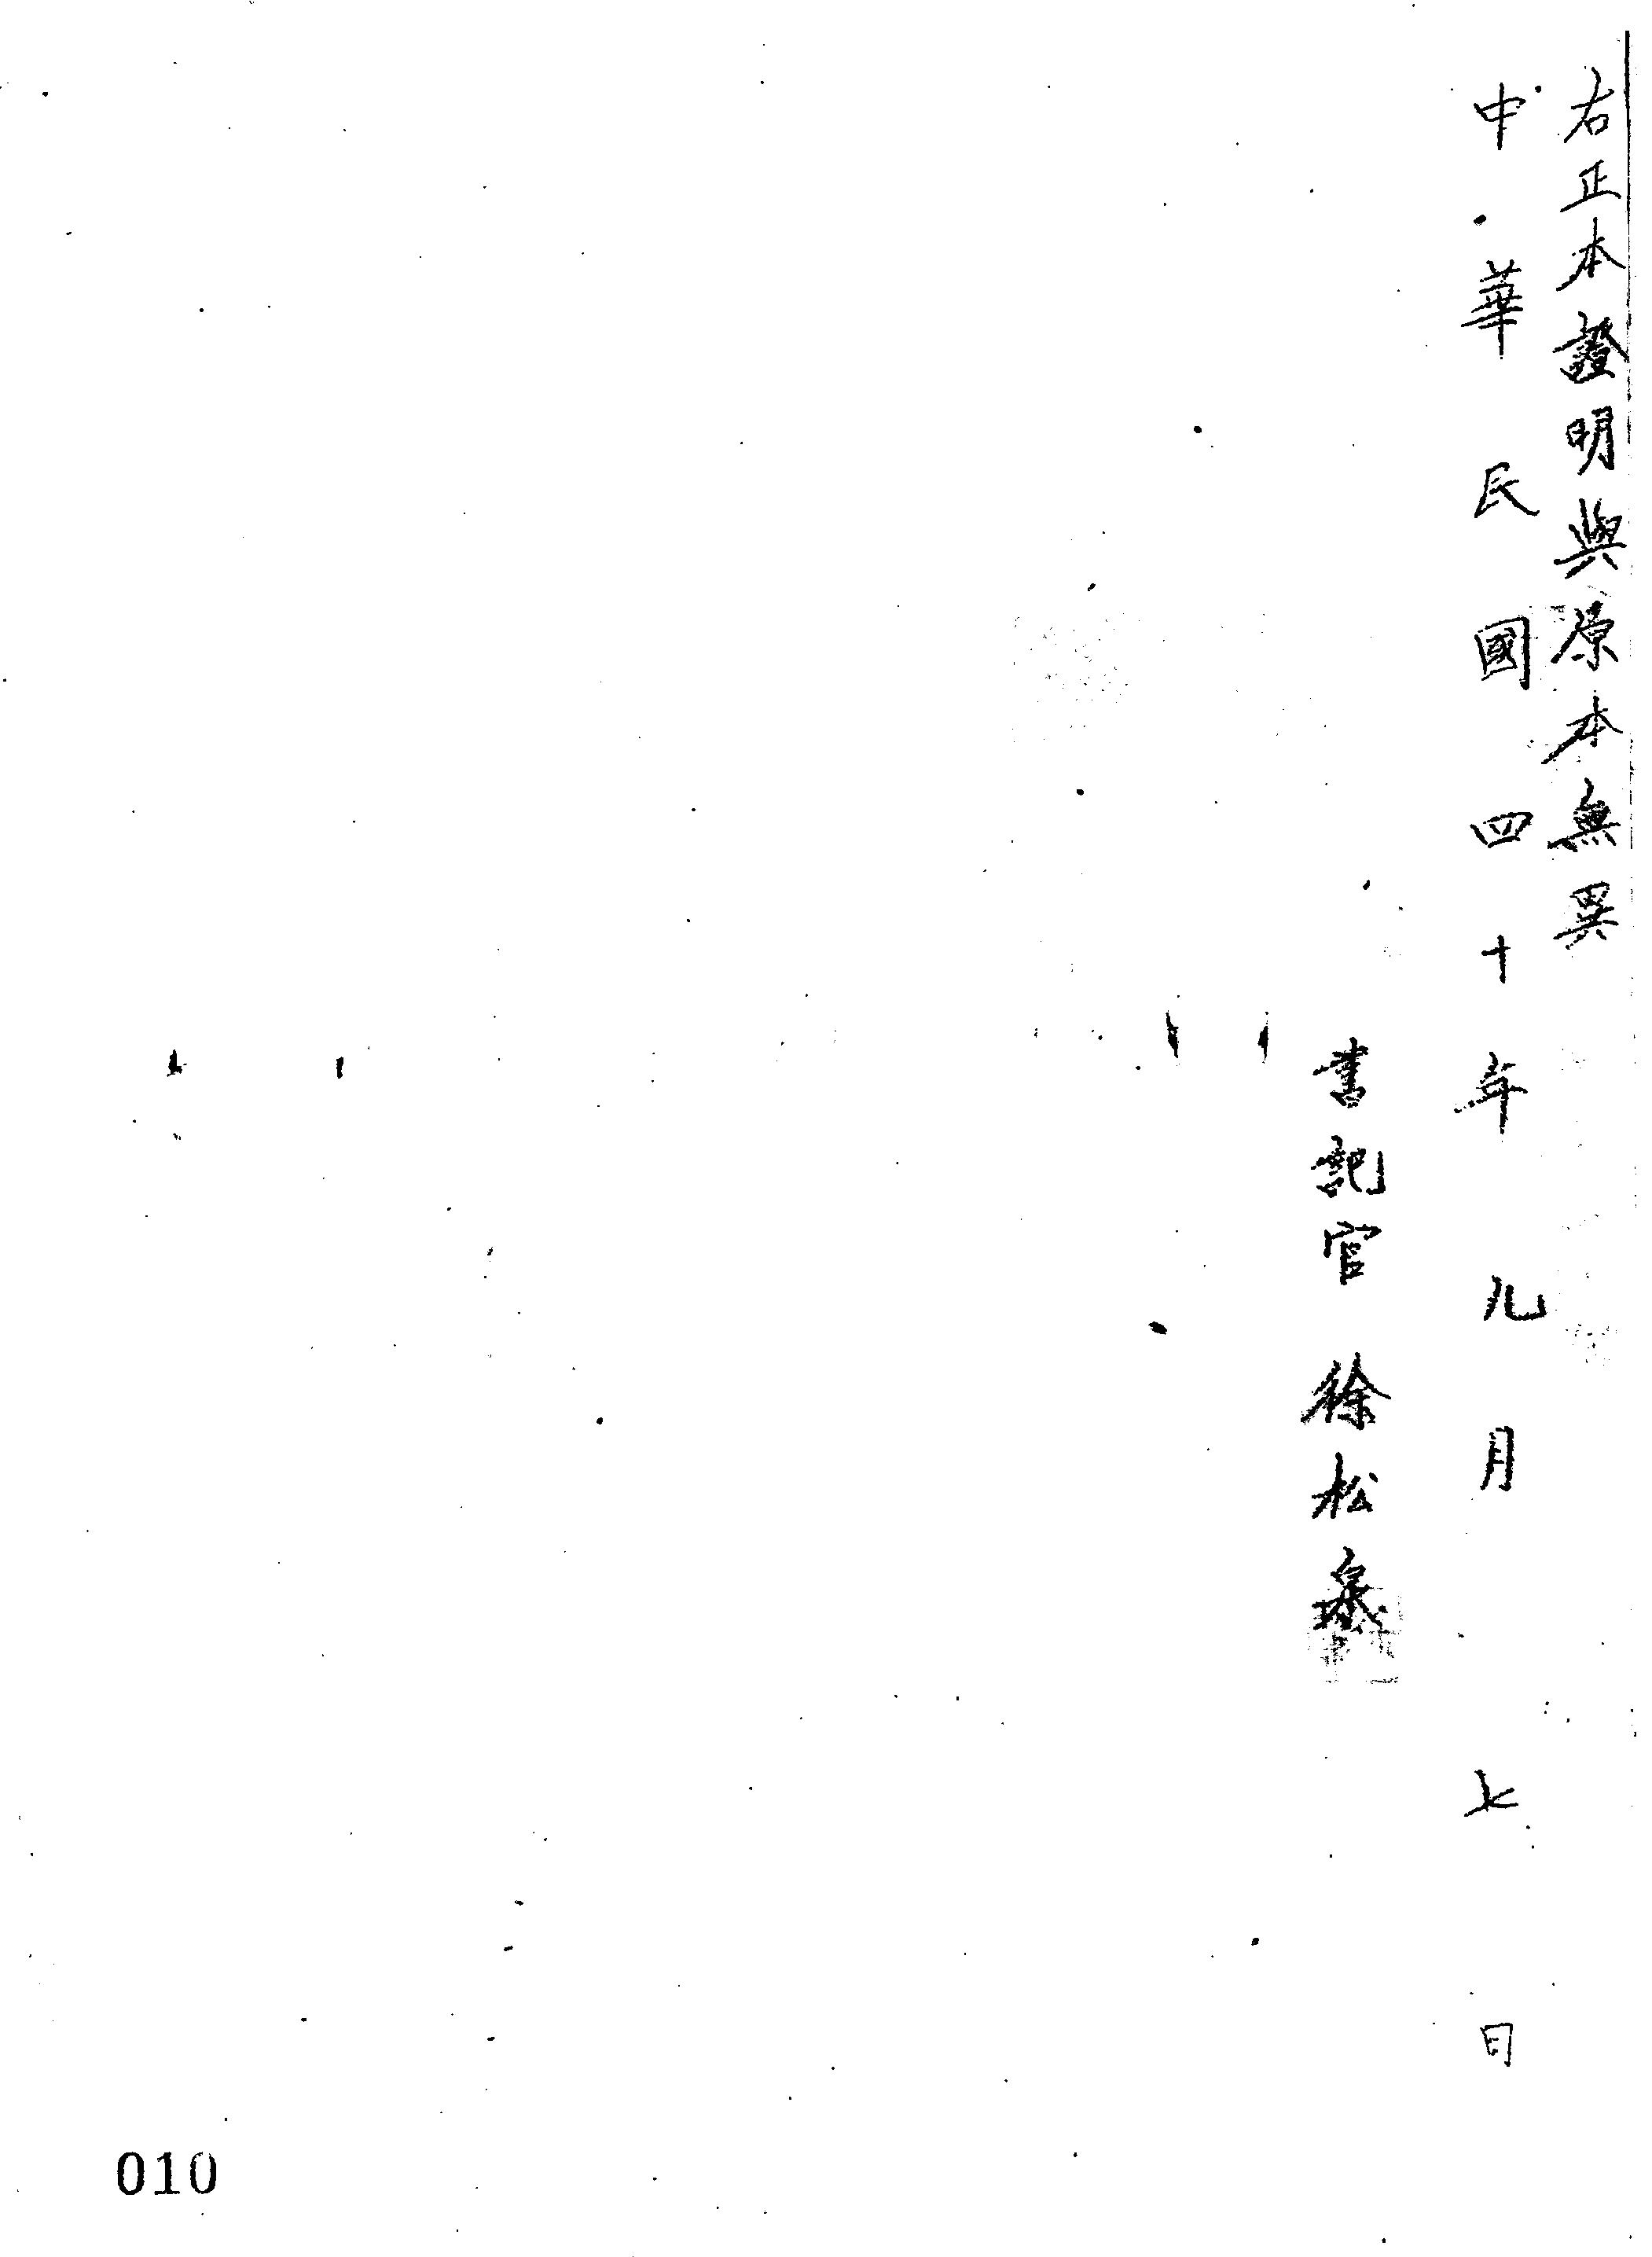 右正本證明與原本無異
中華民國四十年九月七日
書記官徐松泉
010